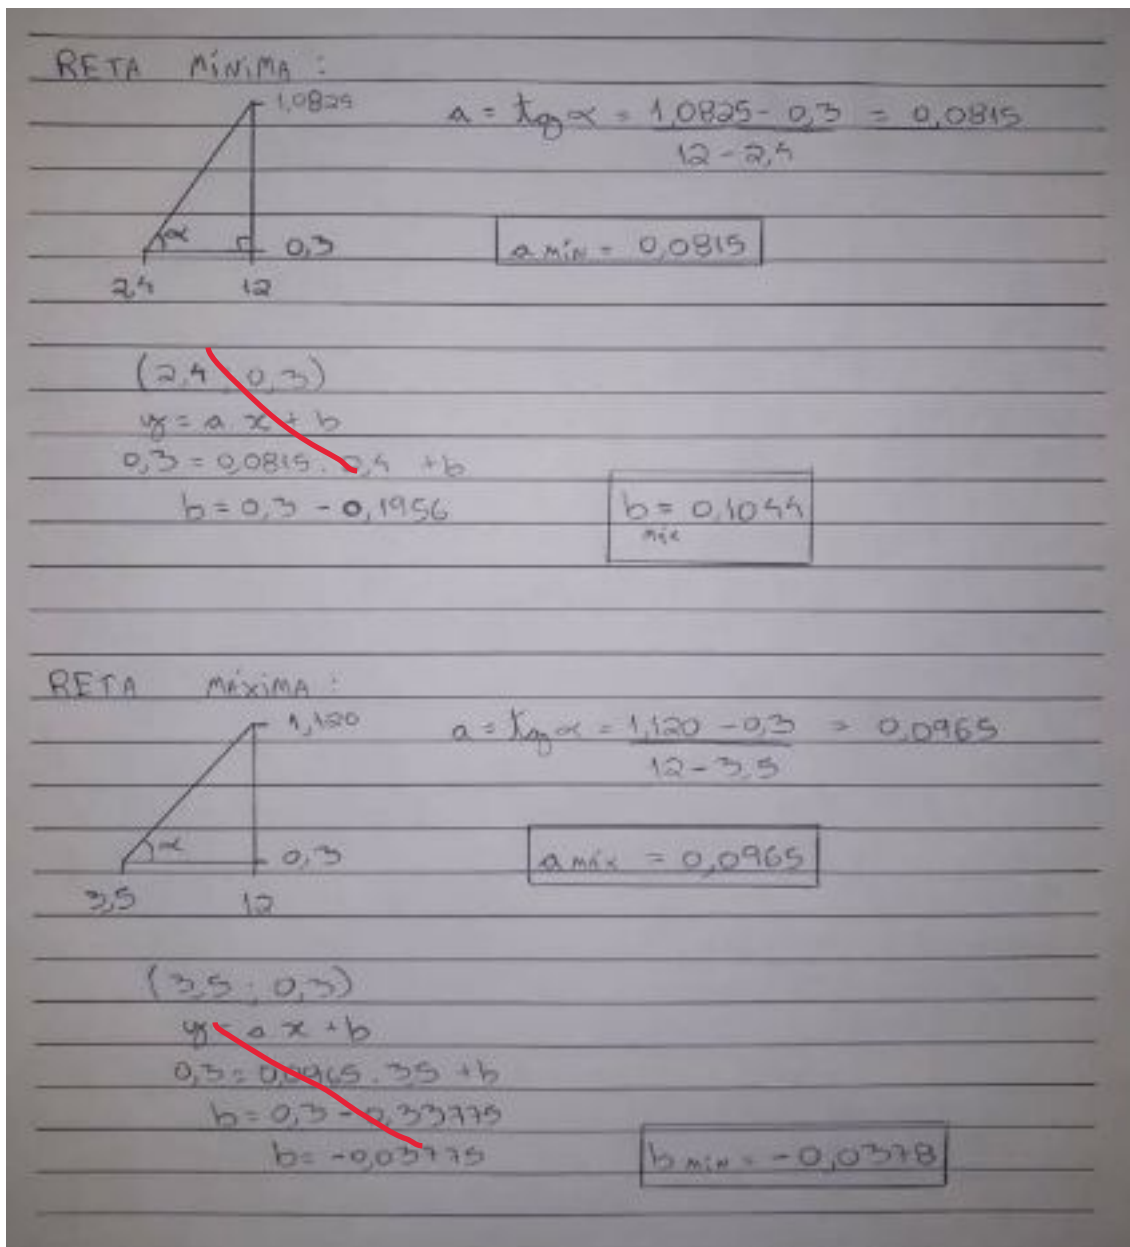 RETA MÍNIMA :
1,0825
a = tg α = 1,0825 - 0,3 = 0,0815
12 - 2,4
α
0,3
2,4 12
a mín = 0,0815
(2,4 ; 0,3)
y = a x + b
0,3 = 0,0815 . 2,4 + b
b = 0,3 - 0,1956
b máx = 0,1044
RETA MÁXIMA :
1,120
a = tg α = 1,120 - 0,3 = 0,0965
12 - 3,5
α
0,3
3,5 12
a máx = 0,0965
(3,5 ; 0,3)
y = a x + b
0,3 = 0,0965 . 3,5 + b
b = 0,3 - 0,33775
b = -0,03775
b mín = -0,0378